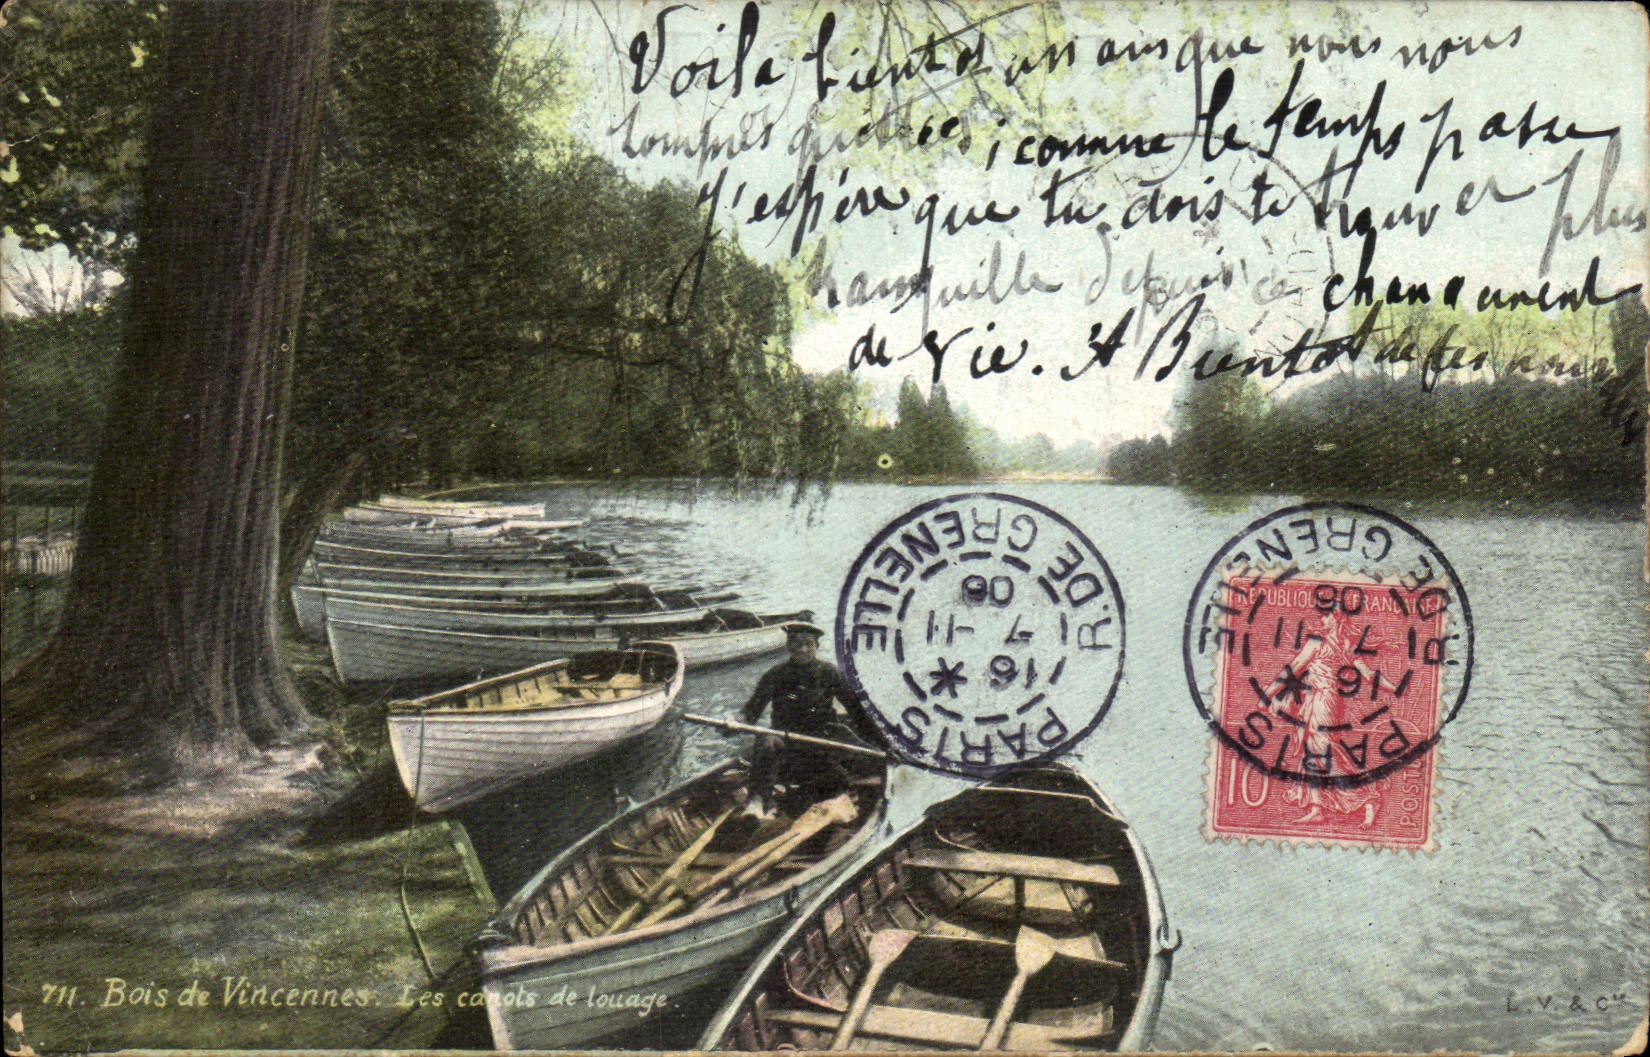 Voila bientot un ans que nous nous
sommes quittées, comme le temps passe
J'espère que tu dois te trouver plus
tranquille depuis ce changement
de vie. A Bientot de tes nouv
711. Bois de Vincennes. Les canots de louage.
L. V. & Cie
PARIS
R. DE GRENELLE
16 *
7 - 11
06
PARIS
R. DE GRENELLE
16 *
7 - 11
06
REPUBLIQUE FRANCAISE
10
POSTES